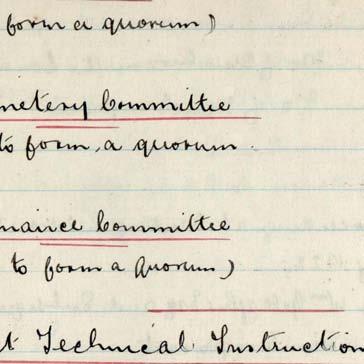 form a quorum)
metery Committee
to form a quorum.
nance Committee
to form a Quorum)
t Technical Instruction